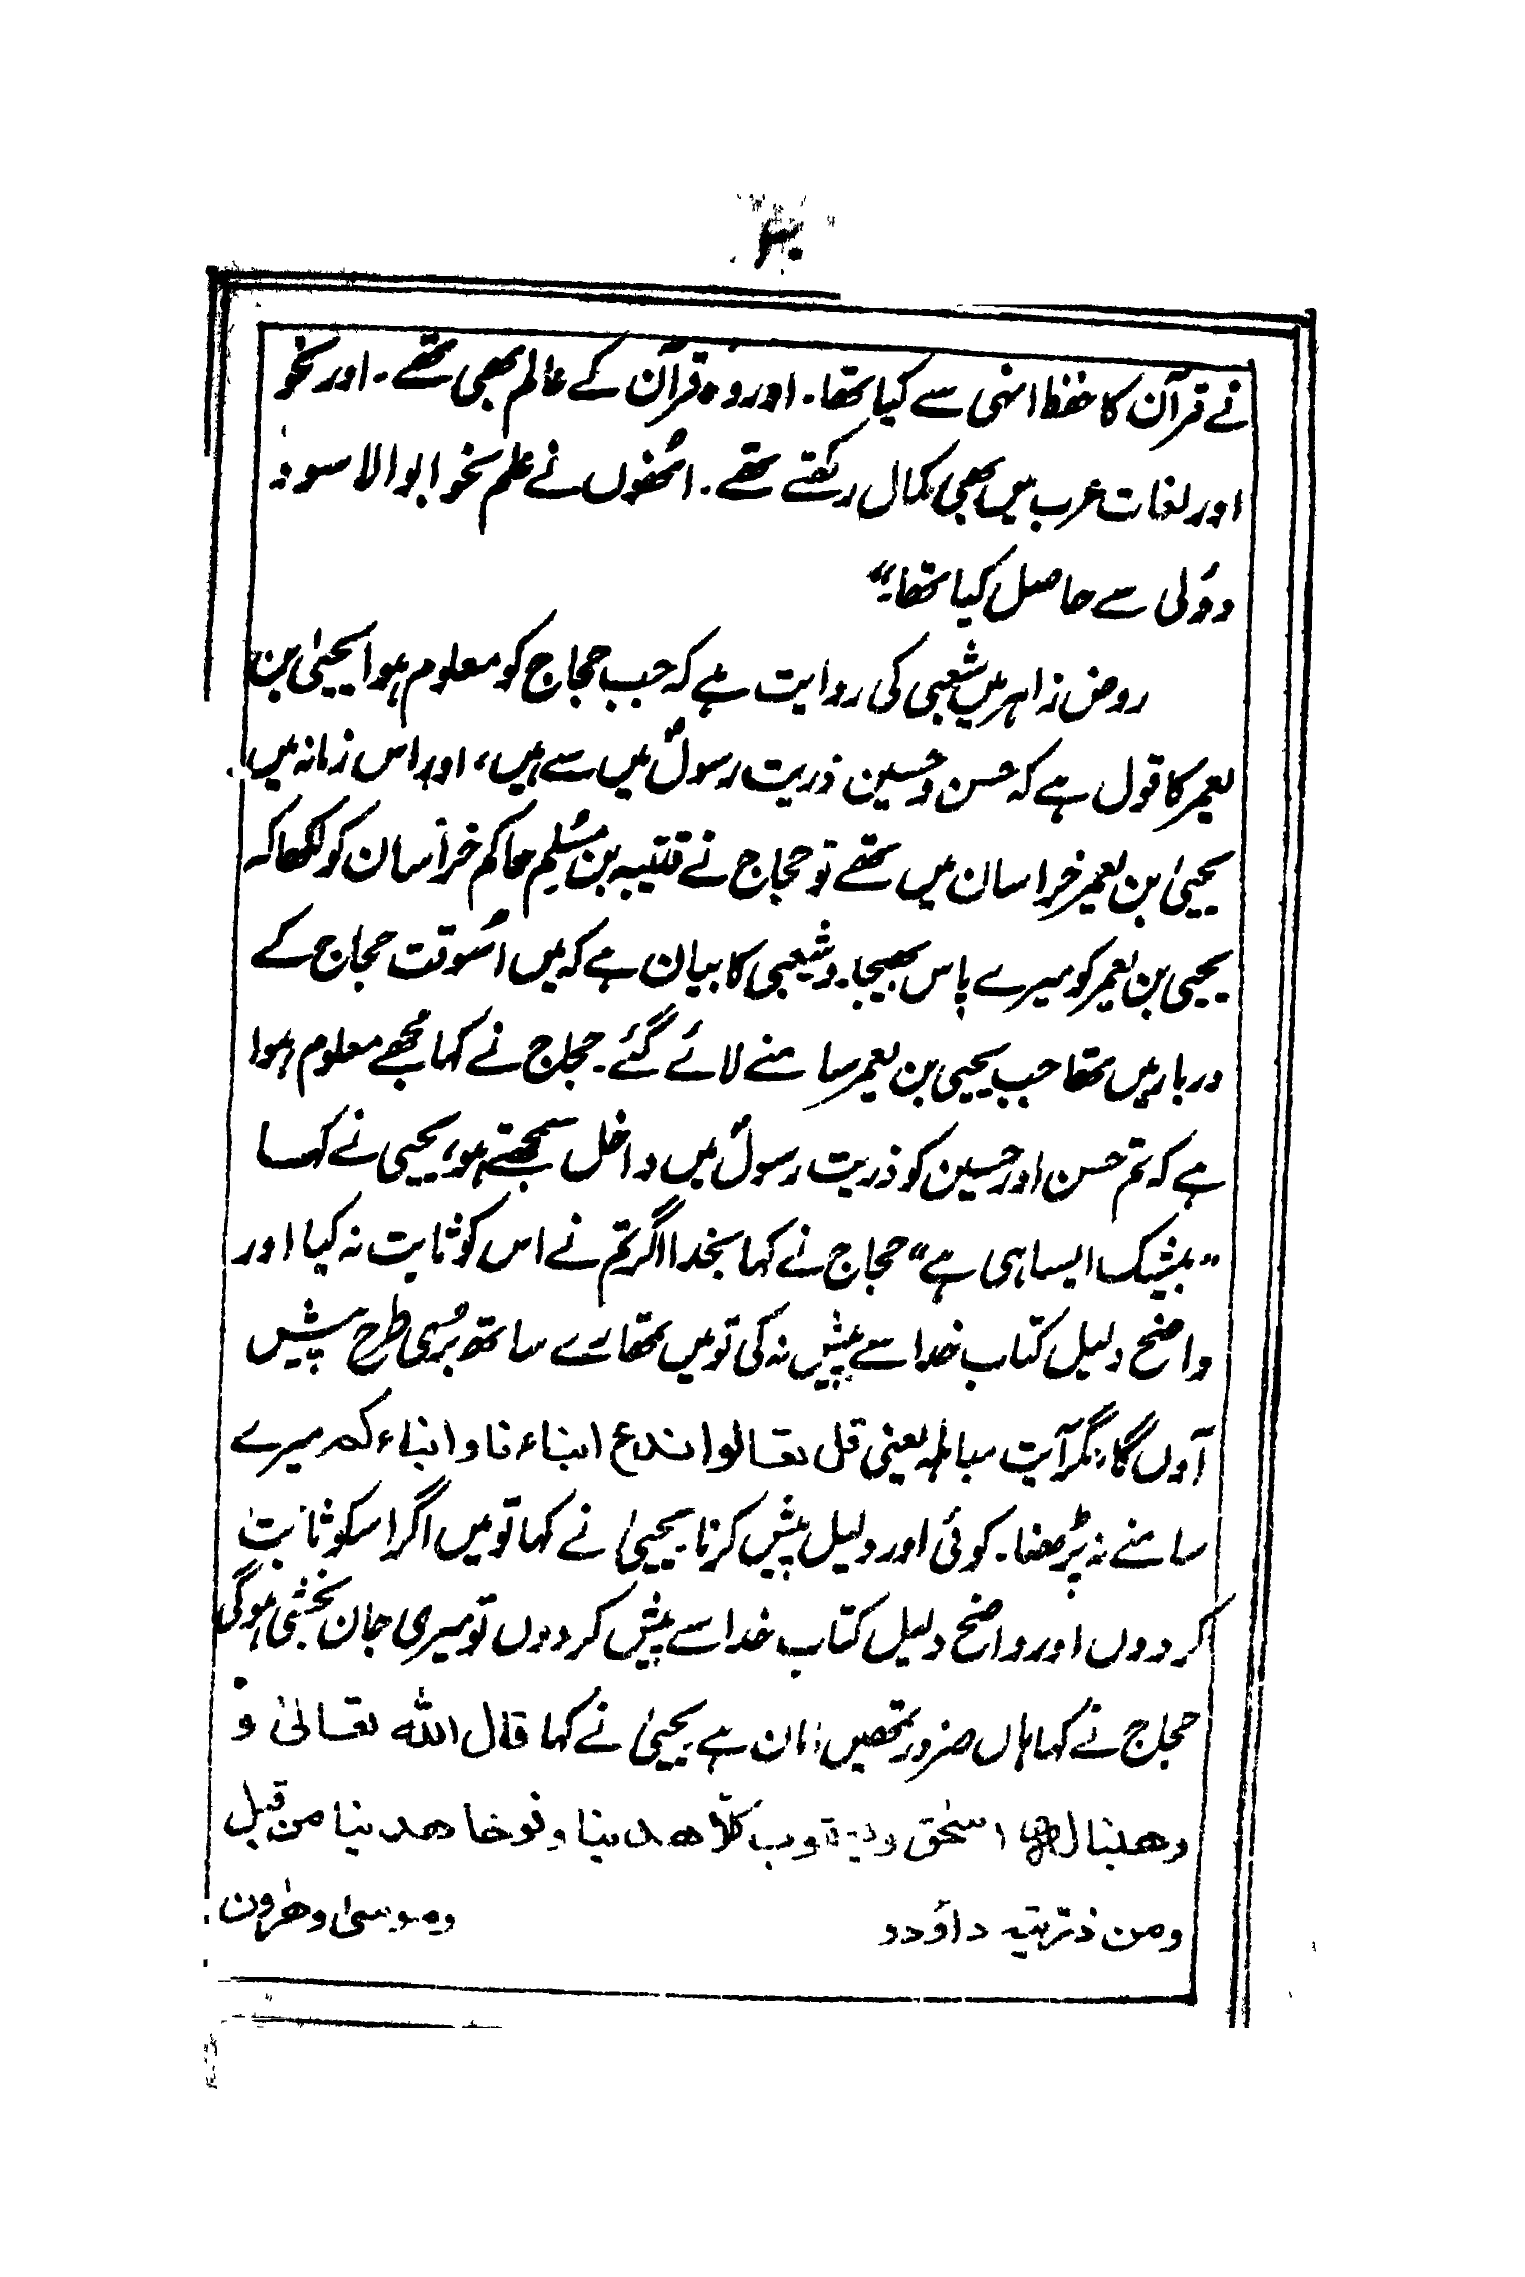 نے قرآن کا حفظ انہی سے کیا تھا۔ اور وہ قرآن کے عالم بھی تھے۔ اور نحو
اور لغات عرب میں بھی کمال رکھتے تھے۔ انھوں نے علم نحو ابوالاسود
دؤلی سے حاصل کیا تھا۔"
روض زاہر میں شعبی کی روایت ہے کہ جب حجاج کو معلوم ہوا یحییٰ بن
یعمر کا قول ہے کہ حسن و حسین ذریت رسولؐ میں سے ہیں، اور اس زمانہ میں
یحییٰ بن یعمر خراسان میں تھے تو حجاج نے قتیبہ بن مُسلِم حاکم خراسان کو لکھا کہ
یحیی بن یعمر کو میرے پاس بھیجا۔ شعبی کا بیان ہے کہ میں اسوقت حجاج کے
دربار میں تھا جب یحیی بن یعمر سامنے لائے گئے۔ حجاج نے کہا مجھے معلوم ہوا
ہے کہ تم حسن اور حسین کو ذریت رسولؐ میں داخل سمجھتے ہو، یحیی نے کہا
"بیشک ایسا ہی ہے" حجاج نے کہا بخدا اگر تم نے اس کو ثابت نہ کیا اور
واضح دلیل کتاب خدا سے پیش نہ کی تو میں تمھارے ساتھ بُری طرح پیش
آؤں گا، مگر آیت مباہلہ یعنی قل تعالوا ندع ابناء نا و ابناء کم میرے
سامنے نہ پڑھنا۔ کوئی اور دلیل پیش کرنا۔ یحییٰ نے کہا تو میں اگر اسکو ثابت
کردوں اور واضح دلیل کتاب خدا سے پیش کردوں تو میری جان بخشی ہوگی
حجاج نے کہا ہاں ضرور تمھیں امان ہے یحییٰ نے کہا قال اللہ تعالیٰ و
وھبنا لہ اسحٰق ویعقوب کلاّ ھدینا ونوحا ھدینا من قبل
ومن ذریتہ داؤد و وموسیٰ وھٰرون